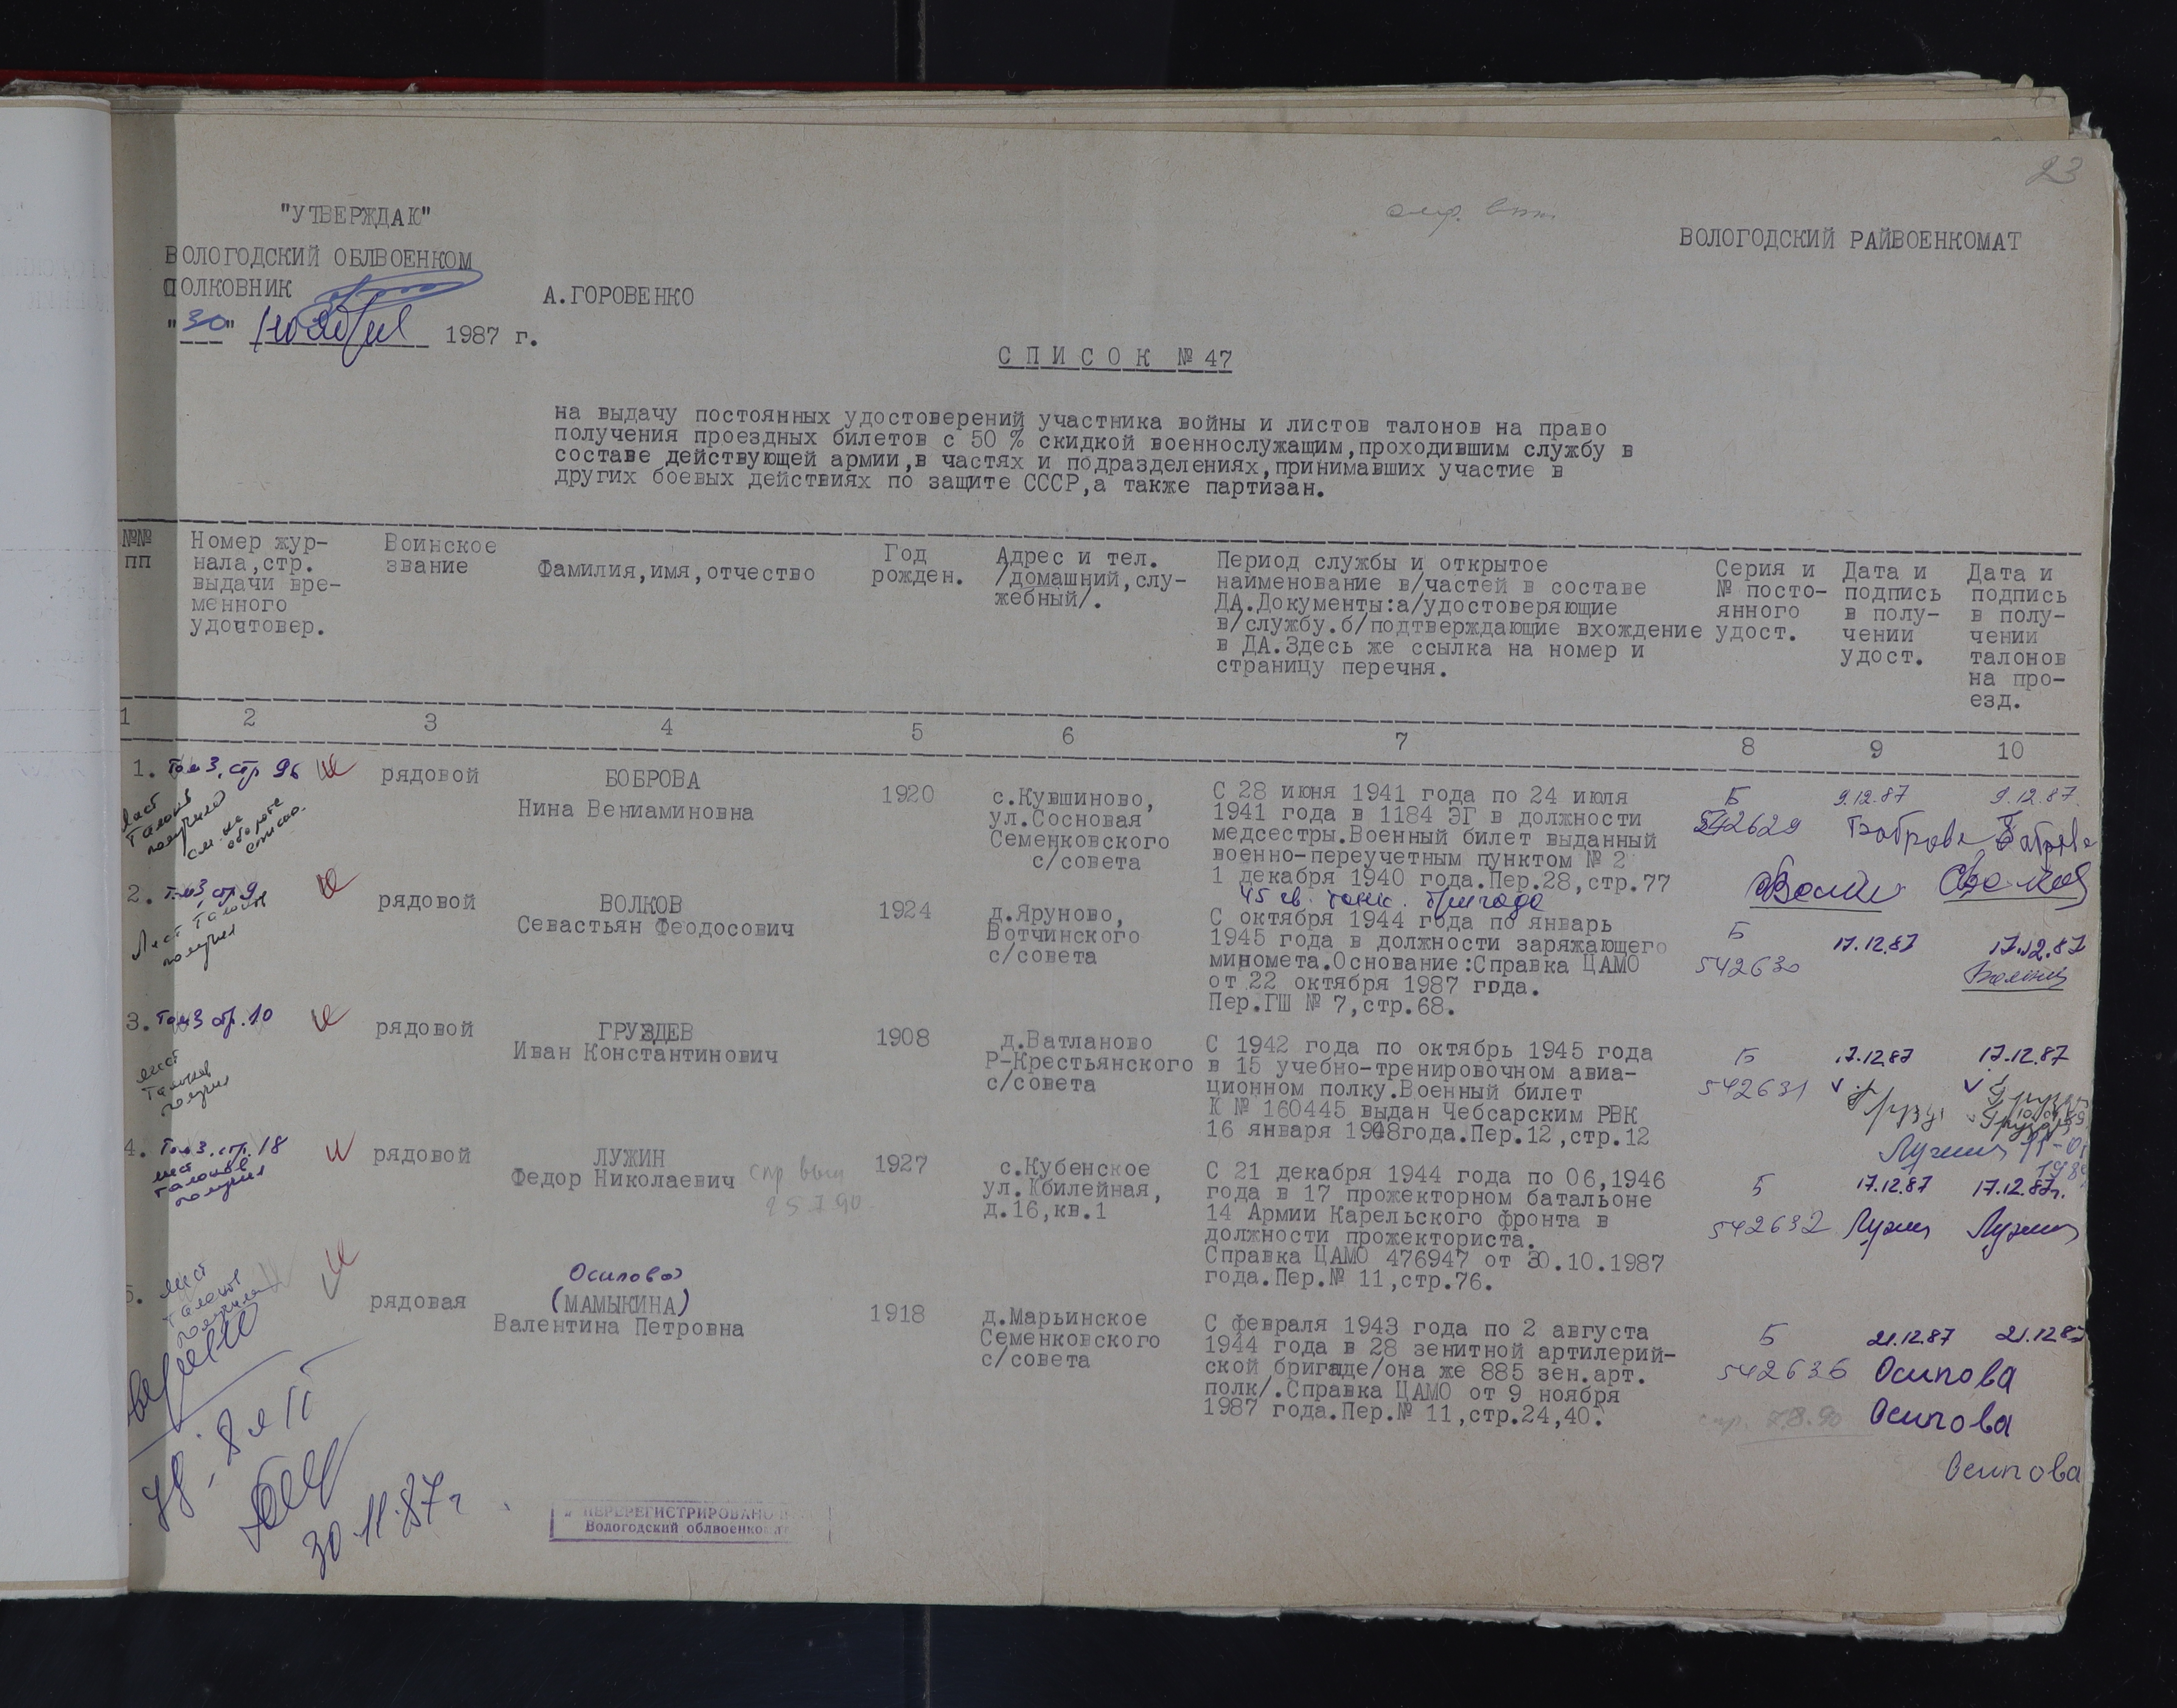 23
"УТВЕРЖДАЮ"
ВОЛОГОДСКИЙ ОБЛВОЕНКОМ
ПОЛКОВНИК
А.ГОРОВЕНКО
"30" ноября 1987 г.
ВОЛОГОДСКИЙ РАЙВОЕНКОМАТ
С П И С О К № 47
на выдачу постоянных удостоверений участника войны и листов талонов на право
получения проездных билетов с 50 % скидкой военнослужащим,проходившим службу в
составе действующей армии,в частях и подразделениях,принимавших участие в
других боевых действиях по защите СССР,а также партизан.
№№
пп
Номер жур-
нала,стр.
выдачи вре-
менного
удочтовер.
Воинское
звание
Фамилия,имя,отчество
Год
рожден.
Адрес и тел.
/домашний,слу-
жебный/.
Период службы и открытое
наименование в/частей в составе
ДА.Документы:а/удостоверяющие
в/службу.б/подтверждающие вхождение
в ДА.Здесь же ссылка на номер и
страницу перечня.
Серия и
№ посто-
янного
удост.
Дата и
подпись
в полу-
чении
удост.
Дата и
подпись
в полу-
чении
талонов
на про-
езд.
1 2 3 4 5 6 7 8 9 10
1. Том 3, стр 96
Лист
талонов
получила
см. на
обороте
списка.
рядовой
БОБРОВА
Нина Вениаминовна
1920
с.Кувшиново,
ул.Сосновая
Семенковского
с/совета
С 28 июня 1941 года по 24 июля
1941 года в 1184 ЭГ в должности
медсестры.Военный билет выданный
военно-переучетным пунктом № 2
1 декабря 1940 года.Пер.28,стр.77
Б
542629
9.12.87
Боброва
9.12.87.
Боброва
2. Том 3 стр 9
Лист талонов
получил
рядовой
ВОЛКОВ
Севастьян Феодосович
1924
д.Яруново,
Вотчинского
с/совета
45 гв. танк. бригада
С октября 1944 года по январь
1945 года в должности заряжающего
миномета.Основание:Справка ЦАМО
от 22 октября 1987 года.
Пер.ГШ № 7,стр.68.
Б
542630
17.12.87
17.12.87
3. Том 3 стр. 10
лист
талонов
получил
рядовой
ГРУЗДЕВ
Иван Константинович
1908
д.Ватланово
Р-Крестьянского
с/совета
С 1942 года по октябрь 1945 года
в 15 учебно-тренировочном авиа-
ционном полку.Военный билет
К № 160445 выдан Чебсарским РВК
16 января 1948года.Пер.12,стр.12
Б
542631
17.12.87
17.12.87
4. Том 3. стр. 18
лист
талонов
получил
рядовой
ЛУЖИН
Федор Николаевич
1927
с.Кубенское
ул.Юбилейная,
д.16,кв.1
С 21 декабря 1944 года по 06,1946
года в 17 прожекторном батальоне
14 Армии Карельского фронта в
должности прожекториста.
Справка ЦАМО 476947 от 30.10.1987
года.Пер.№ 11,стр.76.
Б
542632
17.12.87
Лужин
17.12.87г.
Лужин
5. лист
талонов
получила
рядовая
Осипова
(МАМЫКИНА)
Валентина Петровна
1918
д.Марьинское
Семенковского
с/совета
С февраля 1943 года по 2 августа
1944 года в 28 зенитной артилерий-
ской бригаде/она же 885 зен.арт.
полк/.Справка ЦАМО от 9 ноября
1987 года.Пер.№ 11,стр.24,40.
Б
542636
21.12.87
21.12.87
Осипова
Осипова
Осипова
спр. 7.8.90
30.11.87г
ПЕРЕРЕГИСТРИРОВАНО
Вологодский облвоенкомат